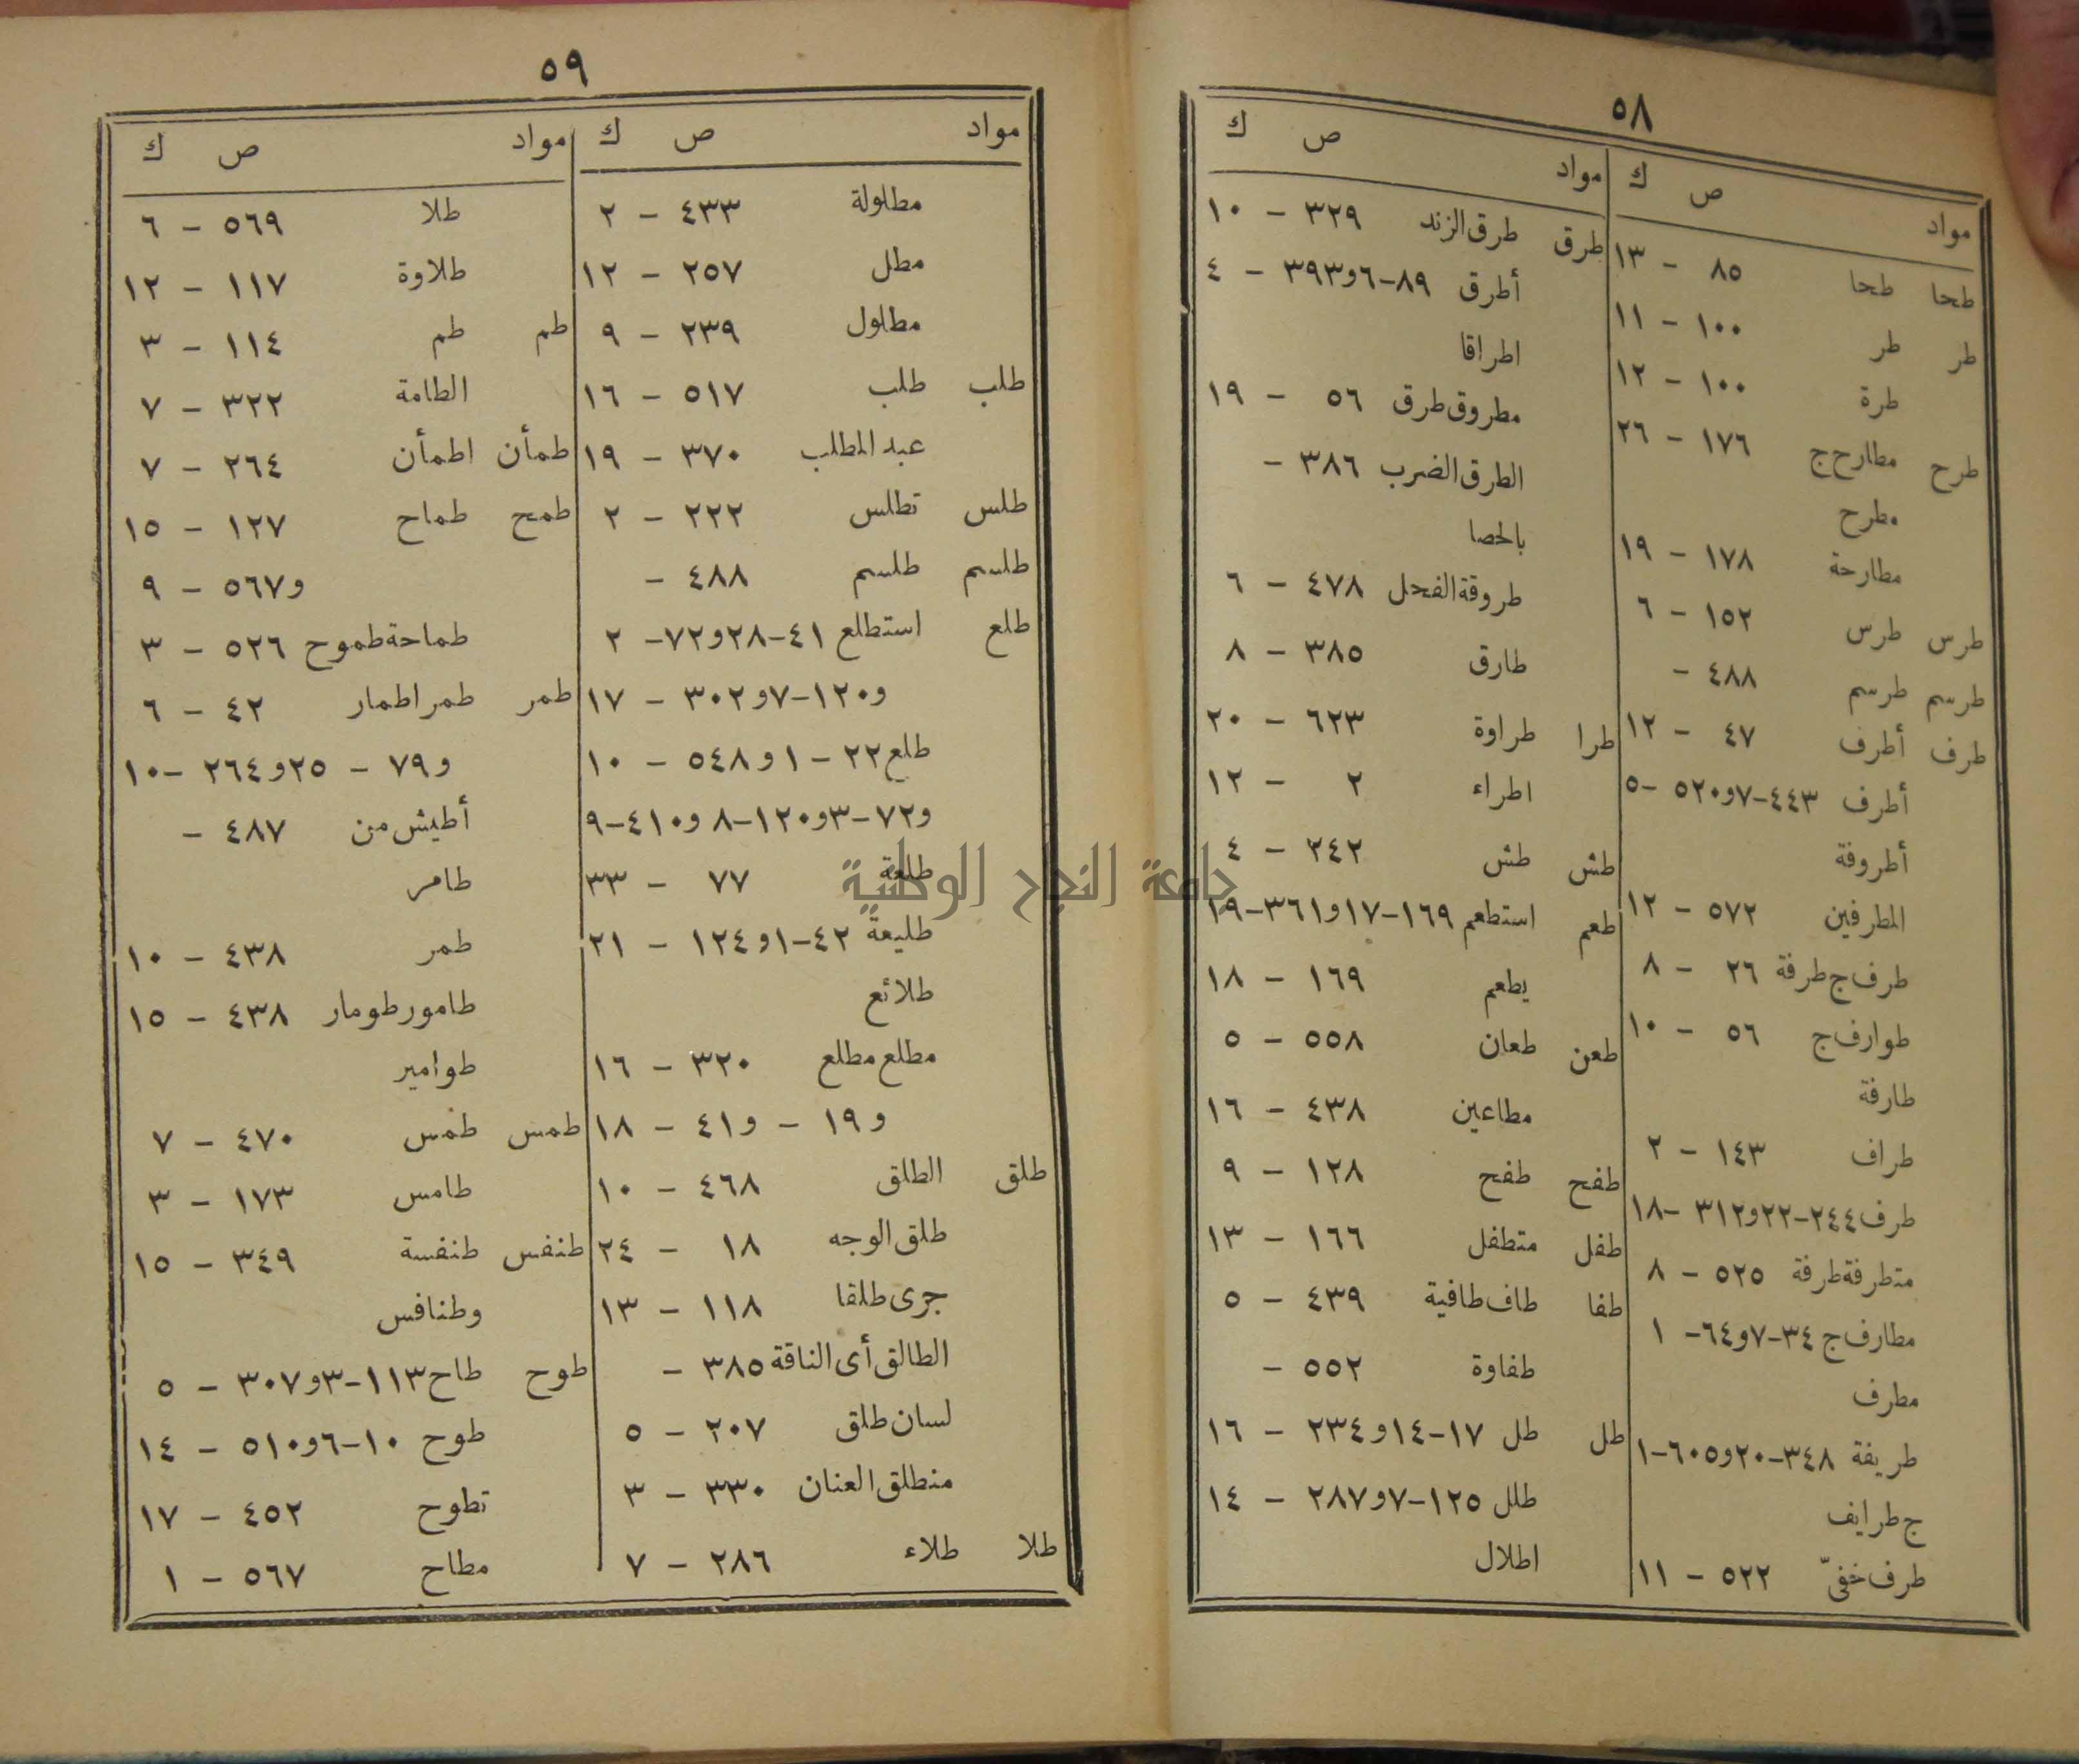 ٥٨
مواد ص ك
طحا طحا ٨٥ – ١٣
طر طر ١٠٠ – ١١
طرة ١٠٠ – ١٢
طرح مطارح ج ١٧٦ – ٢٦
مطرح
مطارحة ١٧٨ – ١٩
طرس طرس ١٥٢ – ٦
طرسم طرسم ٤٨٨ –
طرف أطرف ٤٧ – ١٢
أطرف ٤٤٣-٧و٥٢٠ -٥
أطروفة
المطرفين ٥٧٢ – ١٢
طرف ج طرفة ٢٦ – ٨
طوارف ج ٥٦ – ١٠
طارفة
طراف ١٤٣ – ٢
طرف ٢٤٤-٢٢و٣١٢ -١٨
متطرفة طرفة ٥٢٥ – ٨
مطارف ج ٣٤-٧و٦٤- ١
مطرف
طريفة ٣٤٨-٢٠و٦٠٥-١
ج طرايف
طرف خفىّ ٥٢٢ – ١١
مواد ص ك
طرق طرق الزند ٣٢٩ – ١٠
أطرق ٨٩-٦و٣٩٣ – ٤
اطراقا
مطروق طرق ٥٦ – ١٩
الطرق الضرب ٣٨٦ –
بالحصا
طروقة الفحل ٤٧٨ – ٦
طارق ٣٨٥ – ٨
طرا طراوة ٦٢٣ – ٢٠
اطراء ٢ – ١٢
طش طش ٢٤٢ – ٤
طعم استطعم ١٦٩-١٧و٣٦١-١٩
يطعم ١٦٩ – ١٨
طعن طعان ٥٥٨ – ٥
مطاعين ٤٣٨ – ١٦
طفح طفح ١٢٨ – ٩
طفل متطفل ١٦٦ – ١٣
طفا طاف طافية ٤٣٩ – ٥
طفاوة ٥٥٢ –
طل طل ١٧-١٤و٢٣٤ – ١٦
طلل ١٢٥-٧و٢٨٧ – ١٤
اطلال
٥٩
مواد ص ك
مطلولة ٤٣٣ – ٢
مطل ٢٥٧ – ١٢
مطلول ٢٣٩ – ٩
طلب طلب ٥١٧ – ١٦
عبد المطلب ٣٧٠ – ١٩
طلس تطلس ٢٢٢ – ٢
طلسم طلسم ٤٨٨ –
طلع استطلع ٤١-٢٨و٧٢- ٢
و١٢٠-٧و٣٠٢ – ١٧
طلع ٢٢ – ١و٥٤٨ – ١٠
و٧٢-٣و١٢٠-٨ و٤١٠-٩
طلعة ٧٧ – ٣٣
طليعة ٤٢-١و١٢٤ – ٢١
طلائع
مطلع مطلع ٣٢٠ – ١٦
و١٩ – و٤١ – ١٨
طلق الطلق ٤٦٨ – ١٠
طلق الوجه ١٨ – ٢٤
جرى طلقا ١١٨ – ١٣
الطالق أى الناقة ٣٨٥ –
لسان طلق ٢٠٧ – ٥
منطلق العنان ٣٣٠ – ٣
طلا طلاء ٢٨٦ – ٧
مواد ص ك
طلا ٥٦٩ – ٦
طلاوة ١١٧ – ١٢
طم طم ١١٤ – ٣
الطامة ٣٢٢ – ٧
طمأن اطمأن ٢٦٤ – ٧
طمح طماح ١٢٧ – ١٥
و٥٦٧ – ٩
طماحة طموح ٥٢٦ – ٣
طمر طمر اطمار ٤٢ – ٦
و٧٩ – ٢٥و٢٦٤ -١٠
أطيش من ٤٨٧ –
طامر
طمر ٤٣٨ – ١٠
طامور طومار ٤٣٨ – ١٥
طوامير
طمس طمس ٤٧٠ – ٧
طامس ١٧٣ – ٣
طنفس طنفسة ٣٤٩ – ١٥
وطنافس
طوح طاح ١١٣-٣و٣٠٧ – ٥
طوح ١٠-٦و٥١٠ – ١٤
تطوح ٤٥٢ – ١٧
مطاح ٥٦٧ – ١
جامعة النجاح الوطنية